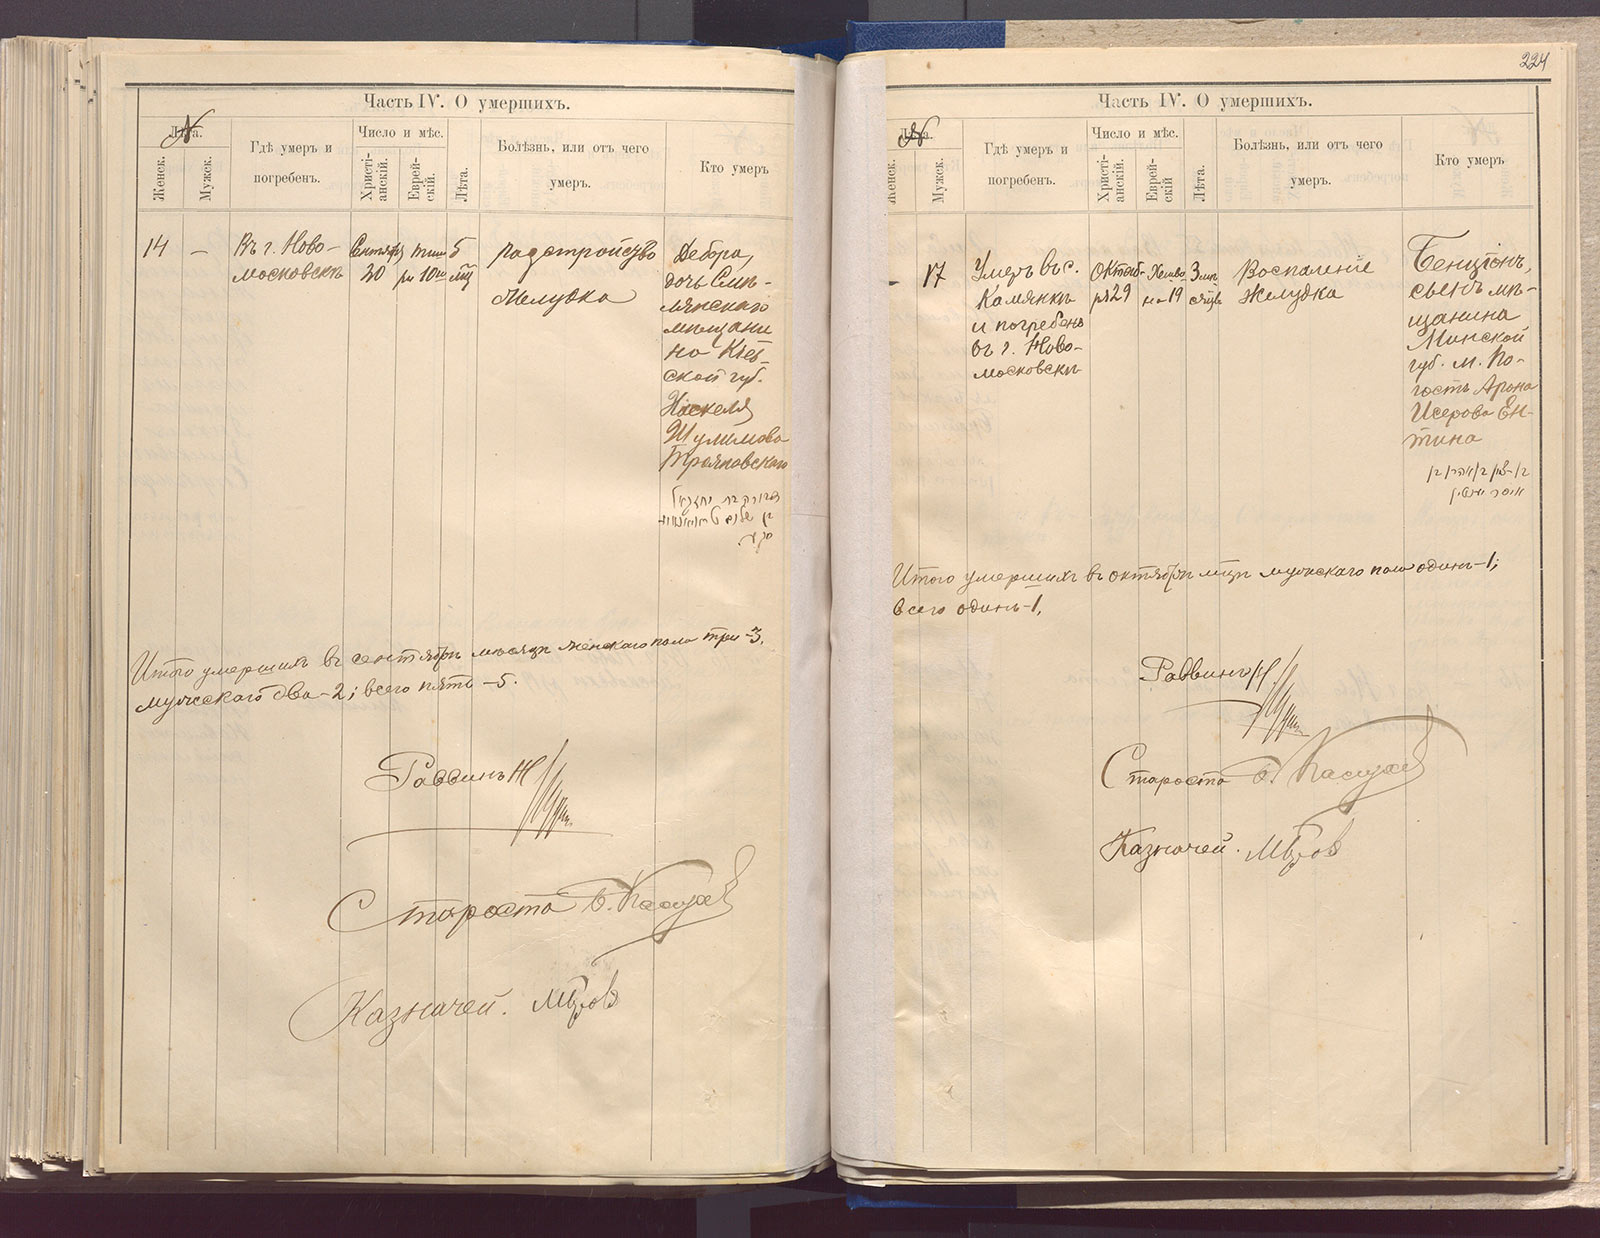 Часть IV. О умершихъ.
№
Лѣта.
Женск.
Мужск.
Гдѣ умеръ и
погребенъ.
Число и мѣс.
Христі-
анскій.
Еврей-
скій.
Лѣта.
Болѣзнь, или отъ чего
умеръ.
Кто умеръ
14
—
Въ г. Ново-
московскѣ
Сентября
20
Тиш-
ри 10го
5
мѣц
разстройство
желудка
Дебора,
дочь Смѣ-
лянскаго
мѣщани
на Кіев-
ской губ.
Хаскеля
Шулимова
Трояновскаго
דבורה בת יחזקאל
בן שלום
Итого умершихъ въ сентябрѣ мѣсяцѣ женскаго пола три-3,
мужескаго два-2; всего пять-5.
Раввинъ
Староста
Казначей.
224
Часть IV. О умершихъ.
№
Лѣта.
Женск.
Мужск.
Гдѣ умеръ и
погребенъ.
Число и мѣс.
Христі-
анскій.
Еврей-
скій
Лѣта.
Болѣзнь, или отъ чего
умеръ.
Кто умеръ
-
17
Умеръ въ с.
Камянкѣ
и погребенъ
въ г. Ново-
московскѣ
Октяб-
ря 29
Хешво
на 19
3 мѣ
сяцев
Воспаленіе
желудка
Бенціонъ,
сынъ мѣ-
щанина
Минской
губ. м. По-
гостъ Арона
Исерова Ен-
тина
בן ציון בן אהרן בן
איסר
Итого умершихъ въ октябрѣ мѣцѣ мужскаго пола одинъ-1;
всего одинъ-1.
Раввинъ
Староста
Казначей.